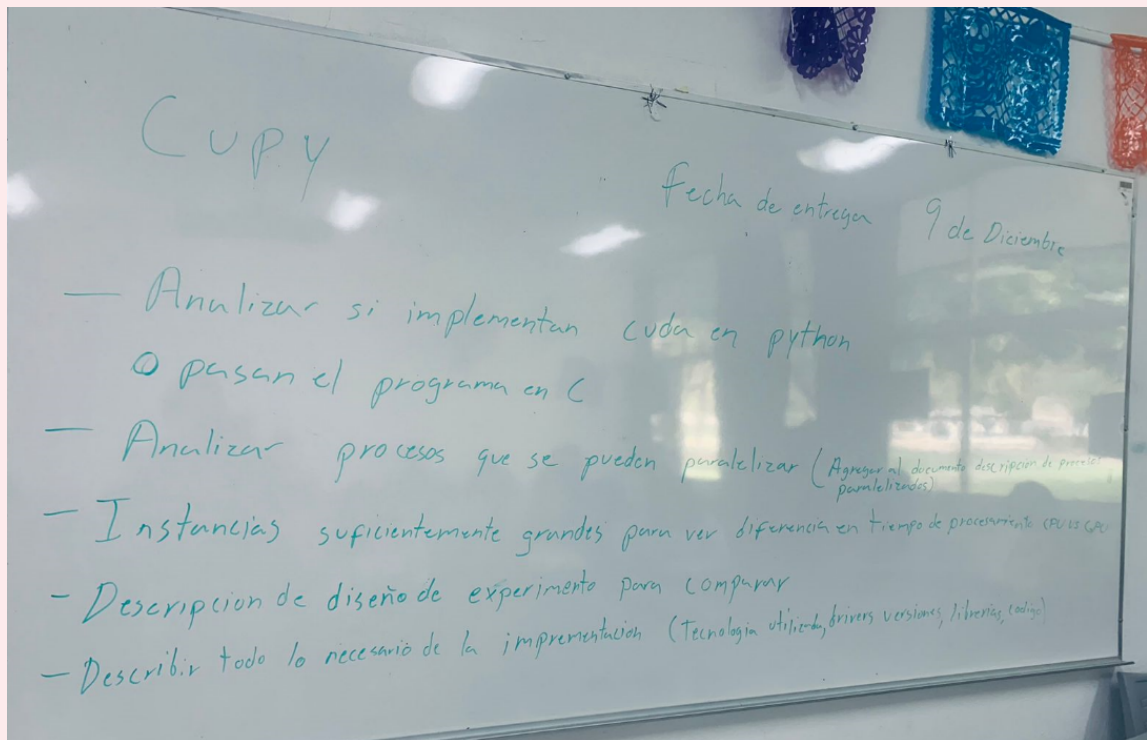 Cupy
Fecha de entrega 9 de Diciembre
— Analizar si implementan cuda en python
O pasan el programa en C
— Analizar procesos que se pueden paralelizar (Agregar al documento descripción de procesos
paralelizados)
— Instancias suficientemente grandes para ver diferencia en tiempo de procesamiento CPU vs GPU
- Descripcion de diseño de experimento para comparar
- Describir todo lo necesario de la imprementación (Tecnología utilizada, drivers versiones, librerías, codigo)